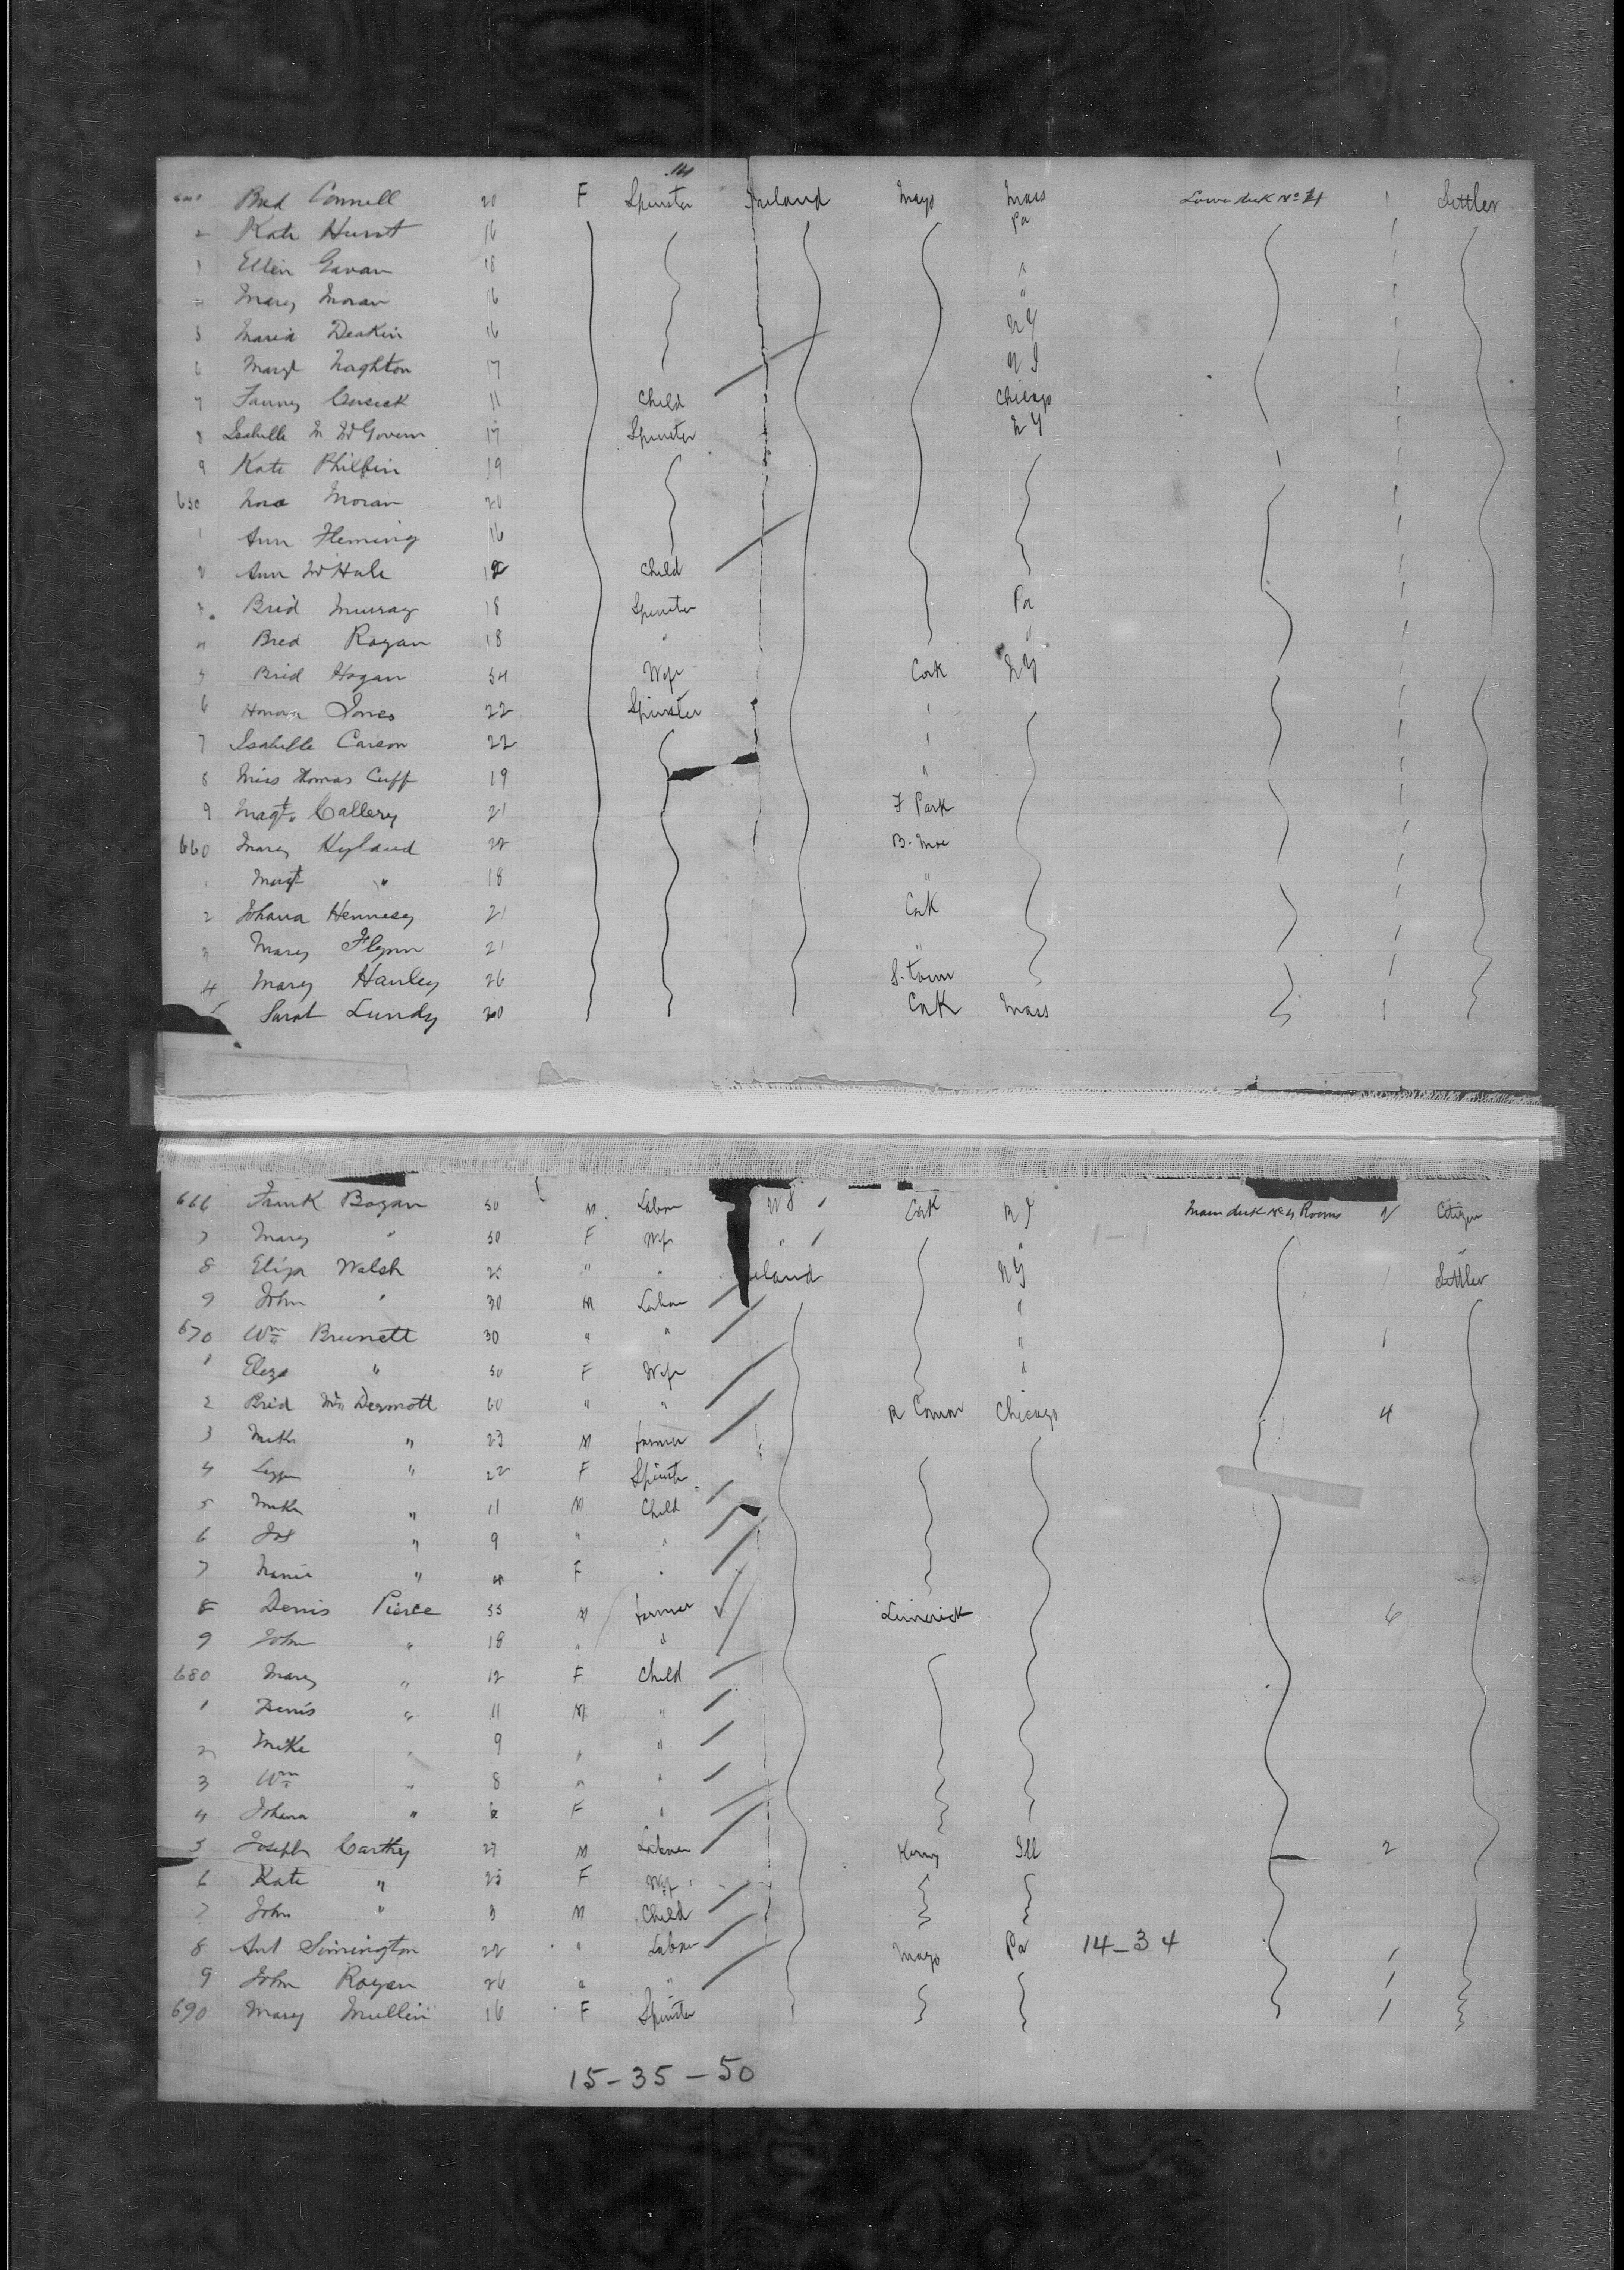 14
Brid Connell 20 F Spinster Ireland Mayo Mass Lower deck No 4 1 Settler
2 Kate Hurst 16 Pa 1
3 Ellen Gavan 18 " 1
4 Mary Moran 16 " 1
5 Maria Deakin 16 NY 1
6 Margt Naghton 17 1
7 Fanny Cusick 11 Child Chicago 1
8 Isabelle M McGovern 17 Spinster NY 1
9 Kate Philbin 19 1
650 Nora Moran 20 1
1 Ann Fleming 16 1
2 Ann McHale Child 1
3 Brid Murray 18 Spinster Pa 1
4 Brid Rogan 18 " " 1
5 Brid Hogan 54 Wife Cork NY 1
6 Honora Jones 22 Spinster " 1
7 Isabelle Carson 22 " 1
8 Miss Thomas Cuff 19 " 1
9 Magt. Callery 21 F Park 1
660 Mary Hyland 22 B. Moe 1
Margt " 18 " 1
2 Johana Hennesy 21 Cork 1
3 Mary Flynn 21 " 1
4 Mary Hanley 26 S. town 1
5 Sarah Lundy 20 Cork Mass 1
666 Frank Bogan 50 M Labor US Cork NY Main deck No 4 Rooms 2/ Citizen
7 Mary " 50 F Wife " " "
8 Eliza Walsh 25 " " Ireland NY 1 Settler
9 John " 30 M Labor "
670 Wm Brunett 30 " " " 1
1 Eliza " 30 F Wife "
2 Brid McDermott 60 " " R Comon Chicago 4
3 Mike " 23 M farmer
4 Lizzie " 22 F Spinster
5 Mike " 11 M Child
6 Jas " 9 " "
7 Nanie " F "
8 Denis Pierce 55 M farmer Limerick 6
9 John " 18 " "
680 Mary " 12 F Child
1 Denis " 11 M "
2 Mike " 9 " "
3 Wm " 8 " "
4 Johana " F "
5 Joseph Carthy 27 M Laborer Kerry Ill 2
6 Kate " 25 F Wife
7 John " 3 M Child
8 Ant Simington 22 " Labor Mayo Pa 14-34 1
9 John Rogan 26 " " 1
690 Mary Mullin 16 F Spinster 1
15-35-50